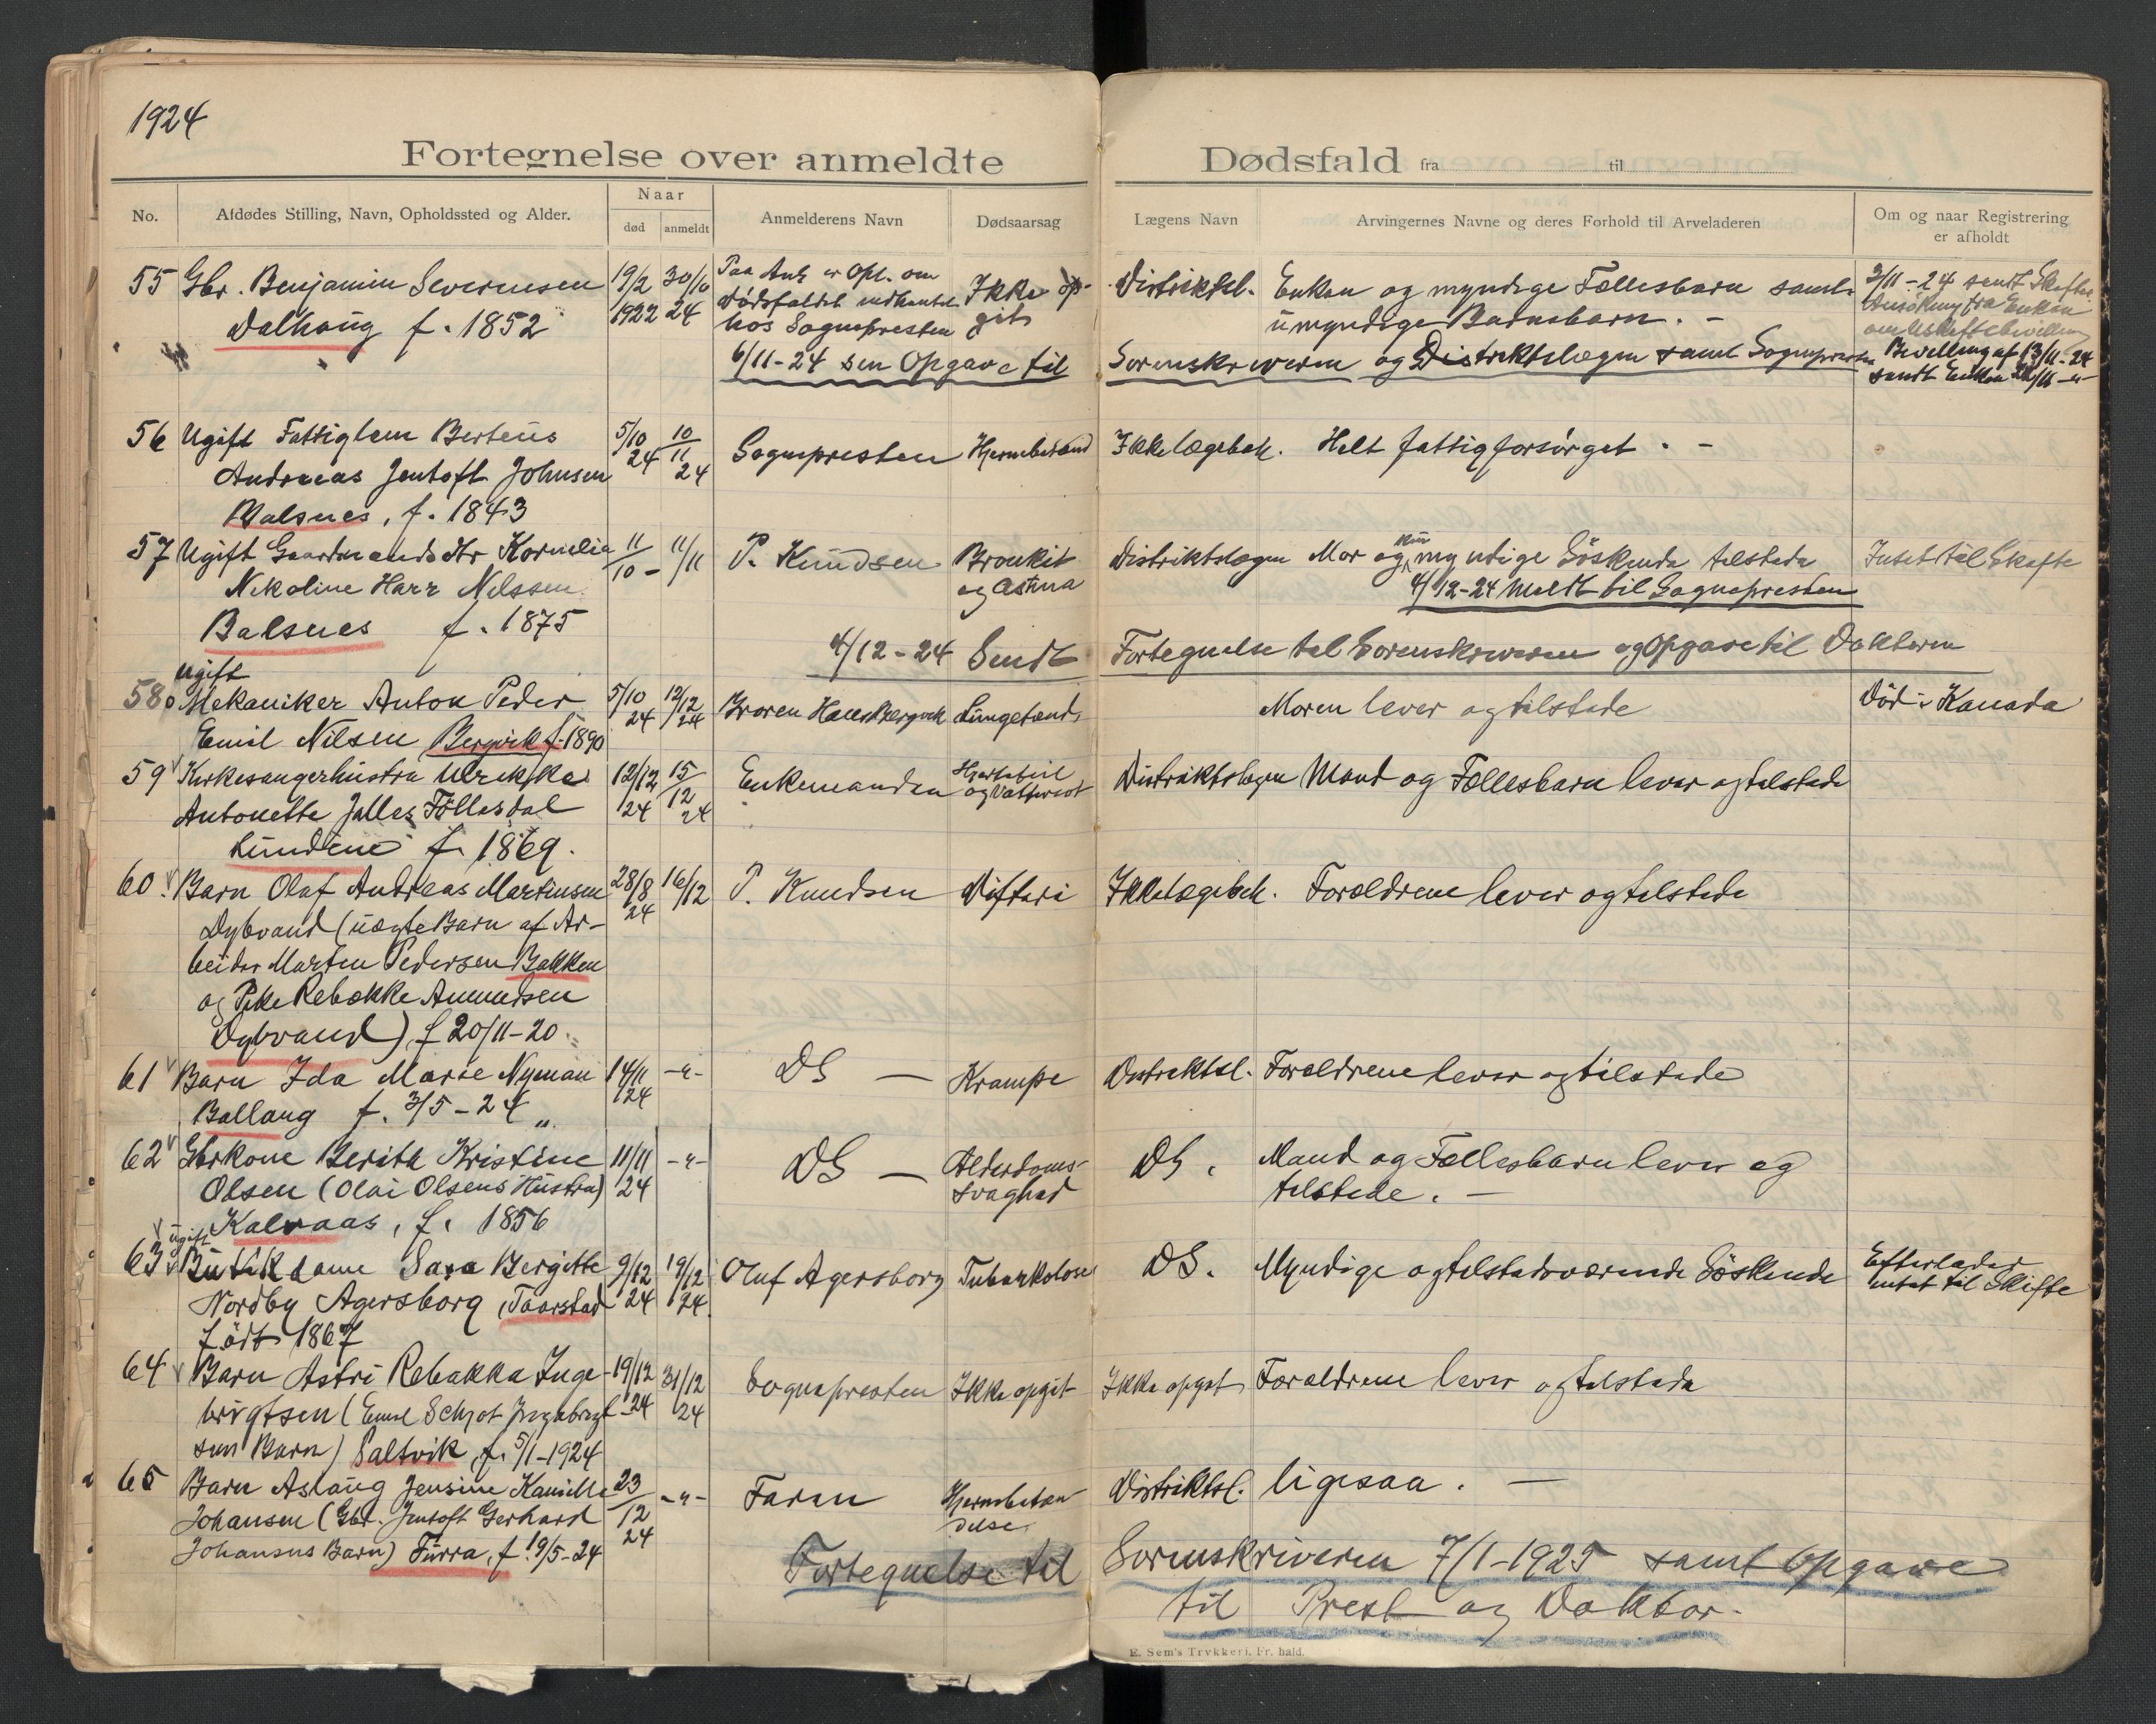 1924
Fortegnelse over anmeldte Dødsfald fra til
No. Afdødes Stilling, Navn, Opholdssted og Alder. Naar død anmeldt Anmelderens Navn Dødsaarsag Lægens Navn Arvingernes Navne og deres Forhold til Arveladeren Om og naar Registrering er afholdt
55 Gbr. Benjamin Severinsen 19/2 30/10 Paa Anl. er Opl. om Ikke op- Distriktsl. Enken og myndige Fællesbarn samt 3/11-24 sendt Skifte-
Dalhaug f. 1852 1922 24 Dødsfaldet indhentet git umyndige Barnebarn. - Ansökning fra Enken
hos Sognepresten om Uskiftebevilling
6/11-24 sen Opgave til Sorenskriveren og Distriktslægen samt Sognepresten Bevilling af 13/11-24
sendt Enken 22/11 -"-
56 Ugift Fattiglem Berteus 5/10 24 10/11 24 Sognepresten Hjernebetænd Ikke lægebeh. Helt fattigforsörget. -
Andreas Jentoft Johnsen
Balsnes, f. 1843
57 Ugift Gaardmandsdtr Kornelia 11/10 - 11/11 P. Knudsen Bronkit Distriktslægen Mor og kun myndige Söskende tilstede Intet til Skifte
Nikoline Harr Nilssen og Astma 4/12-24 meldt til Sognepresten
Balsnes f. 1875
4/12-24 Sendt Fortegnelse til Sorenskriveren og Opgave til Doktoren
ugift
58 Mekaniker Anton Peder 5/10 24 12/12 24 Broren Hans Bergvik Lungetænd. Moren lever og tilstede Död i Kanada
Emil Nilsen Bergvik f. 1890
59 Kirkesangerhustru Ulrikka 12/12 24 15/12 24 Enkemanden Hjertefeil Distriktslægen Mand og Fællesbarn lever og tilstede
Antonette Jalles Föllesdal og Vattersot
Lundene f. 1869.
60. Barn Olaf Andreas Martinsen 28/8 24 16/12 P. Knudsen Difteri Ikke lægebeh. Forældrene lever og tilstede
Dybvand (uægte Barn af Ar-
beider Martin Pedersen Bakken
og Pike Rebekke Amundsen
Dybvand) f 20/11-20.
61 Barn Ida Marie Nyman 14/11 24 -"- DS — Krampe Distriktsl. Forældrene lever og tilstede
Ballang f. 3/5-24 "
62 Gbrkone Berith Kristine 11/11 24 -"- DS — Alderdoms- DS. Mand og Fællesbarn lever og
Olsen (Olai Olsens Hustru) svaghed tilstede. -
Kalvaas, f. 1856
ugift
63 Butikdame Sara Bergitte 9/12 24 19/12 24 Oluf Agersborg Tuberkolose DS. Myndige og tilstedeværende Söskende Efterlader
Nordby Agersborg, Taarstad intet til Skifte
födt 1867
64 Barn Astri Rebekka Inge- 19/12 24 31/12 24 Sognepresten Ikke opgit Ikke opgit Forældrene lever og tilstede
brigtsen (Emil Schjot Ingebrigt-
sens Barn) Saltvik, f. 5/1-1924
65 Barn Aslaug Jensine Kamilla 23/12 24 -"- Faren Hjernebetæn- Distriktsl. ligesaa. —
Johansen (Gbr. Jentoft Gerhard delse
Johansens Barn) Furra, f. 19/5-24
Fortegnelse til Sorenskriveren 7/1-1925 samt Opgave
til Prest og Doktor.
E. Sem's Trykkeri, Fr. hald.